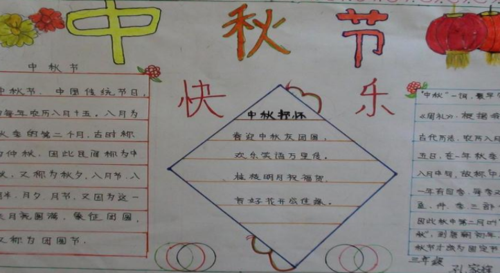 中秋节
快乐
中秋节
中秋节、中国传统节日,
每年农历八月十五,八月为
秋季的第二个月,古时称
为仲秋,因此民间称为中
秋,又称为秋夕、八月节、八
月半、月夕、月节,又因为这一
月亮圆满,象征团圆,
又称为团圆节.
中秋抒怀
喜迎中秋友团圆,
欢乐笑语万里传,
明月祝福
有好花
"中秋"一词,最早
《周礼》,根据
古代历法,农历八月
五日,在一年秋季
八月中旬,故称中
一年有四季,每季
孟、仲、季三部
因此秋中第二月
秋",到唐朝初年
秋节才成为固定节
三年级